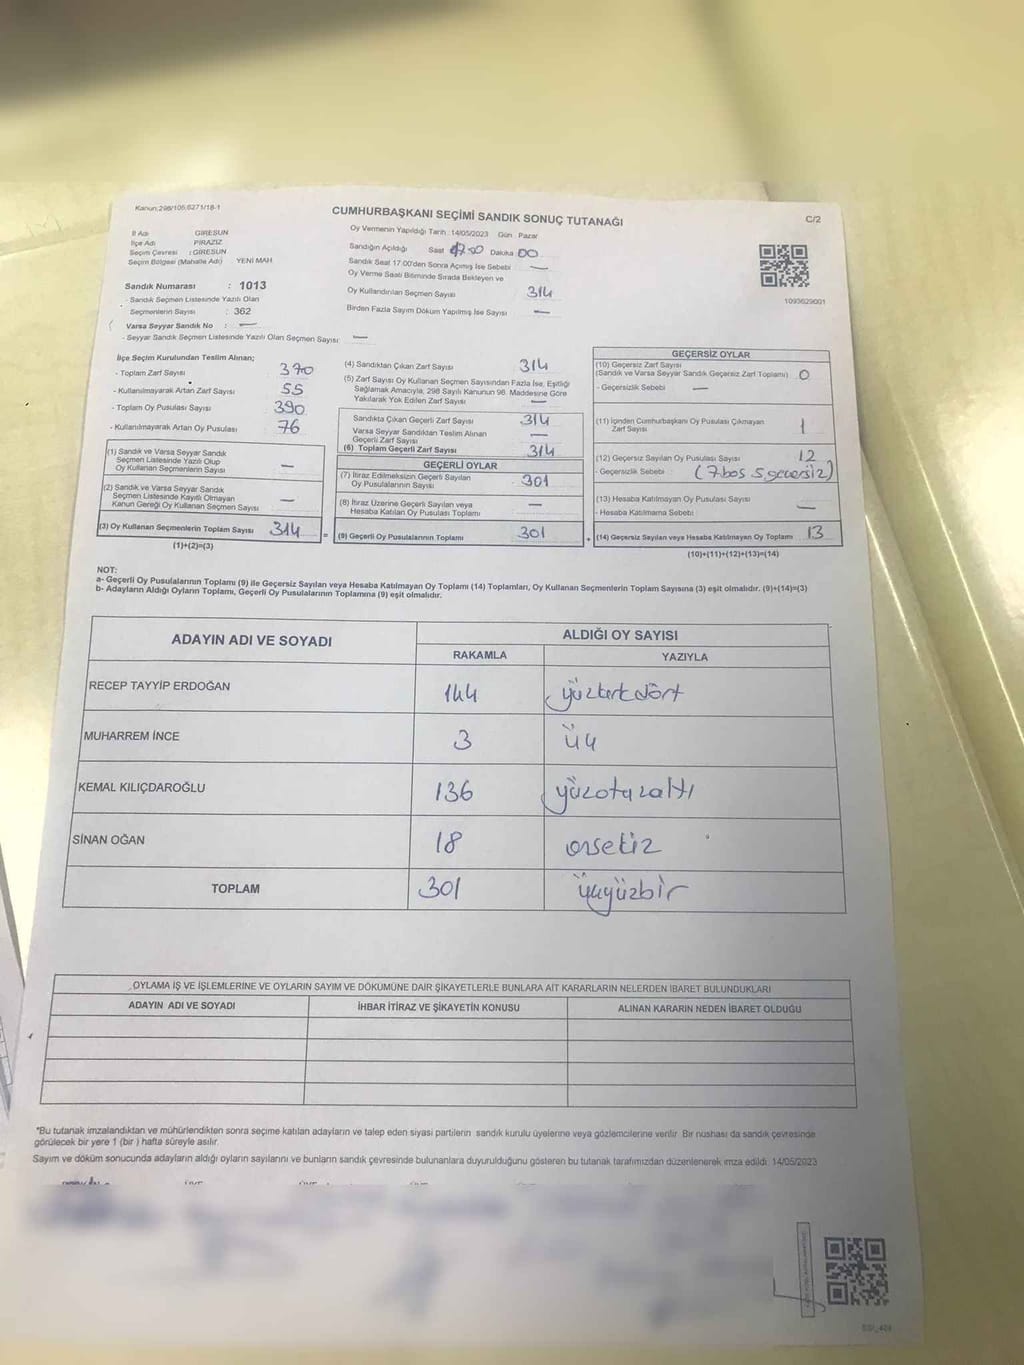 Kanun:298/105;6271/18-1
CUMHURBAŞKANI SEÇİMİ SANDIK SONUÇ TUTANAĞI
C/2
Oy Vermenin Yapıldığı Tarih : 14/05/2023 Gün : Pazar
İl Adı GİRESUN
İlçe Adı PİRAZİZ
Seçim Çevresi : GİRESUN
Seçim Bölgesi (Mahalle Adı) YENİ MAH
Sandığın Açıldığı Saat 17:00 Dakika 00
Sandık Saat 17.00'den Sonra Açımış İse Sebebi —
Oy Verme Saati Bitiminde Sırada Bekleyen ve
Oy Kullandırılan Seçmen Sayısı 314
Birden Fazla Sayım Döküm Yapılmış İse Sayısı —
1093629001
Sandık Numarası : 1013
- Sandık Seçmen Listesinde Yazılı Olan
Seçmenlerin Sayısı : 362
Varsa Seyyar Sandık No : —
- Seyyar Sandık Seçmen Listesinde Yazılı Olan Seçmen Sayısı —
İlçe Seçim Kurulundan Teslim Alınan;
- Toplam Zarf Sayısı 370
- Kullanılmayarak Artan Zarf Sayısı 55
- Toplam Oy Pusulası Sayısı 390
- Kullanılmayarak Artan Oy Pusulası 76
(1) Sandık ve Varsa Seyyar Sandık
Seçmen Listesinde Yazılı Olup
Oy Kullanan Seçmenlerin Sayısı —
(2) Sandık ve Varsa Seyyar Sandık
Seçmen Listesinde Kayıtlı Olmayan
Kanun Gereği Oy Kullanan Seçmen Sayısı —
(3) Oy Kullanan Seçmenlerin Toplam Sayısı 314 =
(1)+(2)=(3)
(4) Sandıktan Çıkan Zarf Sayısı 314
(5) Zarf Sayısı Oy Kullanan Seçmen Sayısından Fazla İse, Eşitliği
Sağlamak Amacıyla, 298 Sayılı Kanunun 98. Maddesine Göre
Yakılarak Yok Edilen Zarf Sayısı —
Sandıkta Çıkan Geçerli Zarf Sayısı 314
Varsa Seyyar Sandıktan Teslim Alınan
Geçerli Zarf Sayısı —
(6) Toplam Geçerli Zarf Sayısı 314
GEÇERLİ OYLAR
(7) İtiraz Edilmeksizin Geçerli Sayılan
Oy Pusulalarının Sayısı 301
(8) İtiraz Üzerine Geçerli Sayılan veya
Hesaba Katılan Oy Pusulası Toplamı —
(9) Geçerli Oy Pusulalarının Toplamı 301 +
GEÇERSİZ OYLAR
(10) Geçersiz Zarf Sayısı
(Sandık ve Varsa Seyyar Sandık Geçersiz Zarf Toplamı) 0
- Geçersizlik Sebebi —
(11) İçinden Cumhurbaşkanı Oy Pusulası Çıkmayan
Zarf Sayısı 1
(12) Geçersiz Sayılan Oy Pusulası Sayısı 12
- Geçersizlik Sebebi (7 boş 5 geçersiz)
(13) Hesaba Katılmayan Oy Pusulası Sayısı
- Hesaba Katılmama Sebebi —
(14) Geçersiz Sayılan veya Hesaba Katılmayan Oy Toplamı 13
(10)+(11)+(12)+(13)=(14)
NOT:
a- Geçerli Oy Pusulalarının Toplamı (9) ile Geçersiz Sayılan veya Hesaba Katılmayan Oy Toplamı (14) Toplamları, Oy Kullanan Seçmenlerin Toplam Sayısına (3) eşit olmalıdır. (9)+(14)=(3)
b- Adayların Aldığı Oyların Toplamı, Geçerli Oy Pusulalarının Toplamına (9) eşit olmalıdır.
ADAYIN ADI VE SOYADI ALDIĞI OY SAYISI
RAKAMLA YAZIYLA
RECEP TAYYİP ERDOĞAN 144 yüzkırkdört
MUHARREM İNCE 3 üç
KEMAL KILIÇDAROĞLU 136 yüzotuzaltı
SİNAN OĞAN 18 onsekiz
TOPLAM 301 üçyüzbir
OYLAMA İŞ VE İŞLEMLERİNE VE OYLARIN SAYIM VE DÖKÜMÜNE DAİR ŞİKAYETLERLE BUNLARA AİT KARARLARIN NELERDEN İBARET BULUNDUKLARI
ADAYIN ADI VE SOYADI İHBAR İTİRAZ VE ŞİKAYETİN KONUSU ALINAN KARARIN NEDEN İBARET OLDUĞU
*Bu tutanak imzalandıktan ve mühürlendikten sonra seçime katılan adayların ve talep eden siyasi partilerin sandık kurulu üyelerine veya gözlemcilerine verilir. Bir nüshası da sandık çevresinde
görülecek bir yere 1 (bir ) hafta süreyle asılır.
Sayım ve döküm sonucunda adayların aldığı oyların sayılarını ve bunların sandık çevresinde bulunanlara duyurulduğunu gösteren bu tutanak tarafımızdan düzenlenerek imza edildi. 14/05/2023